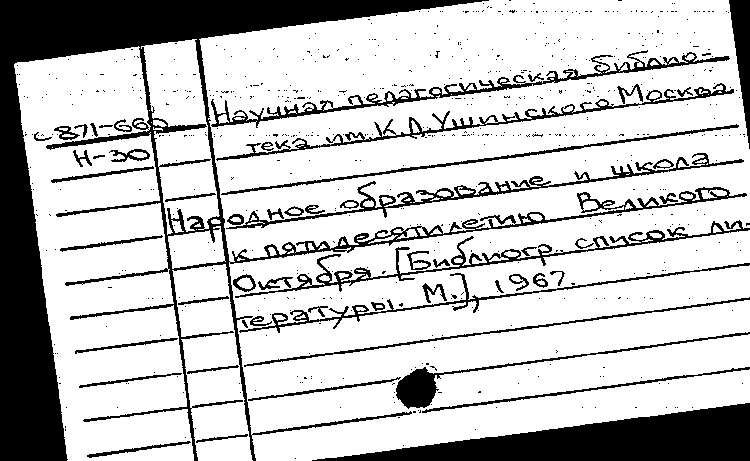 Научная педагогическая библио-
с-871-660 тека им. К.Д.Ушинского Москва
Н-30
Народное образование и школа
к пятидесятилетию Великого
Октября. [Библиогр. список ли-
тературы. М.], 1967.